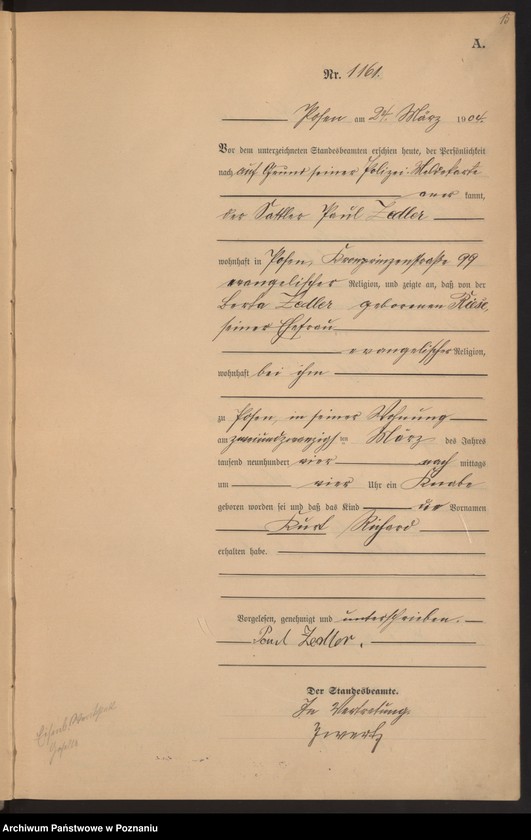 13
A.
Nr. 1161.
Posen am 24. März 1904.
Vor dem unterzeichneten Standesbeamten erschien heute, der Persönlichkeit
nach auf Grund seiner Polizei-Meldekarte
aner kannt,
der Sattler Paul Zedler
wohnhaft in Posen, Kronprinzenstraße 99
evangelischer Religion, und zeigte an, daß von der
Berta Zedler geborenen Riese,
seiner Ehefrau
evangelischer Religion,
wohnhaft bei ihm
zu Posen, in seiner Wohnung
am zweiundzwanzigsten März des Jahres
tausend neunhundert vier nach mittags
um vier Uhr ein Knabe
geboren worden sei und daß das Kind die Vornamen
Kurt Richard
erhalten habe.
Vorgelesen, genehmigt und unterschrieben.
Paul Zedler.
Der Standesbeamte.
In Vertretung.
Archiwum Państwowe w Poznaniu